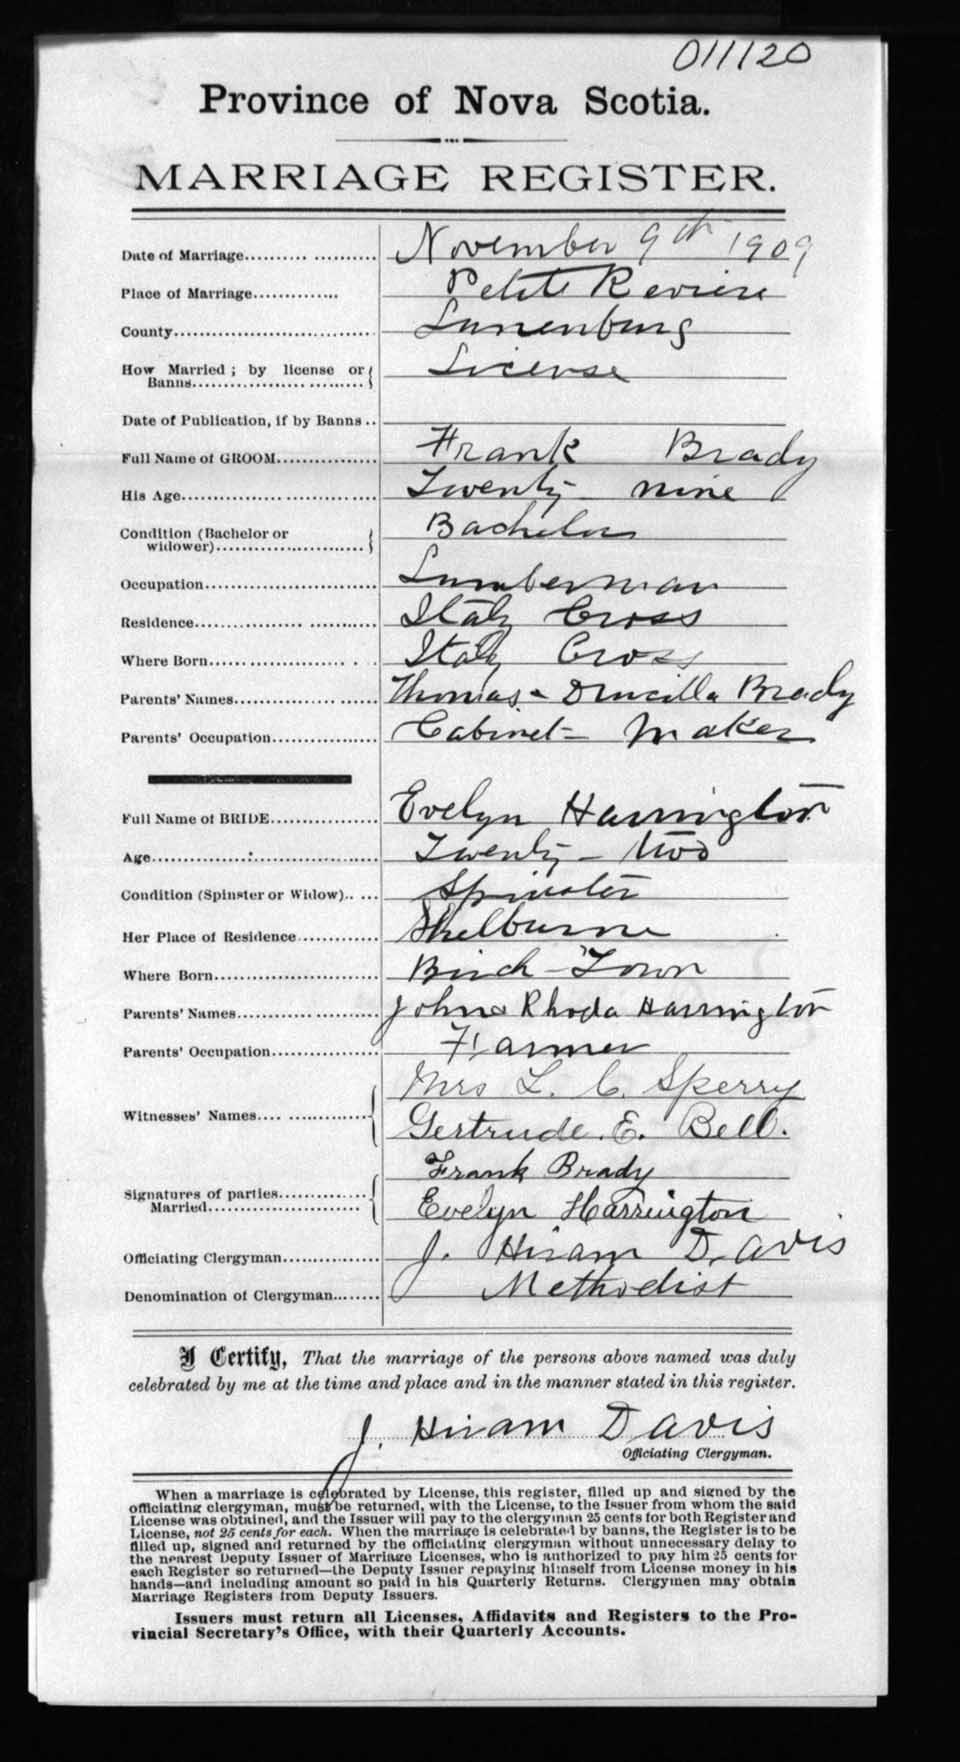 011120
Province of Nova Scotia.
MARRIAGE REGISTER.
Date of Marriage.......... November 9th 1909
Place of Marriage............. Petite Reviere
County............................. Lunenburg
How Married ; by license or
Banns............................ License
Date of Publication, if by Banns ..
Full Name of GROOM................ Frank Brady
His Age............................ Twenty-nine
Condition (Bachelor or
widower)........................ Bachelor
Occupation......................... Lumberman
Residence.......................... Italy Cross
Where Born......................... Italy Cross
Parents' Names..................... Thomas & Drucilla Brady
Parents' Occupation................ Cabinet-Maker
Full Name of BRIDE................. Evelyn Harrington
Age................................ Twenty-two
Condition (Spinster or Widow)..... Spinster
Her Place of Residence............ Shelburne
Where Born........................ Birch-Town
Parents' Names.................... John & Rhoda Harrington
Parents' Occupation............... Farmer
Mrs L. C. Sperry
Witnesses' Names.... ............. Gertrude. E. Bell.
Frank Brady
Signatures of parties.............
Married........................... Evelyn Harrington
Officiating Clergyman............. J. Hiram Davis
Denomination of Clergyman........ Methodist
I Certify, That the marriage of the persons above named was duly
celebrated by me at the time and place and in the manner stated in this register.
J. Hiram Davis
Officiating Clergyman.
When a marriage is celebrated by License, this register, filled up and signed by the
officiating clergyman, must be returned, with the License, to the Issuer from whom the said
License was obtained, and the Issuer will pay to the clergyman 25 cents for both Register and
License, not 25 cents for each. When the marriage is celebrated by banns, the Register is to be
filled up, signed and returned by the officiating clergyman without unnecessary delay to
the nearest Deputy Issuer of Marriage Licenses, who is authorized to pay him 25 cents for
each Register so returned—the Deputy Issuer repaying himself from License money in his
hands—and including amount so paid in his Quarterly Returns. Clergymen may obtain
Marriage Registers from Deputy Issuers.
Issuers must return all Licenses, Affidavits and Registers to the Pro-
vincial Secretary's Office, with their Quarterly Accounts.